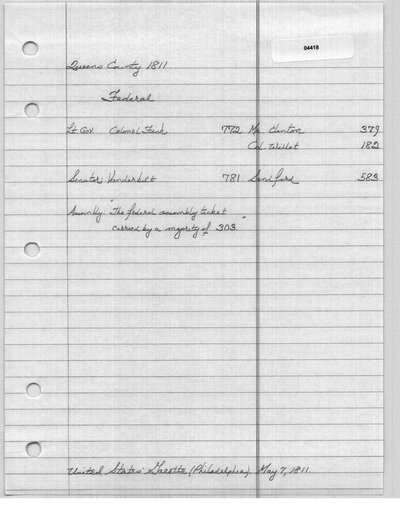 04418
Queens County 1811
Federal
Lt Gov Colonel Fish 772 Mr. Clinton 379
Col. Willet 182
Senator: Vanderbilt 781 Sandford 583
Assembly: "The federal assembly ticket
carried by a majority of 303."
United States' Gazette (Philadelphia). May 7, 1811.